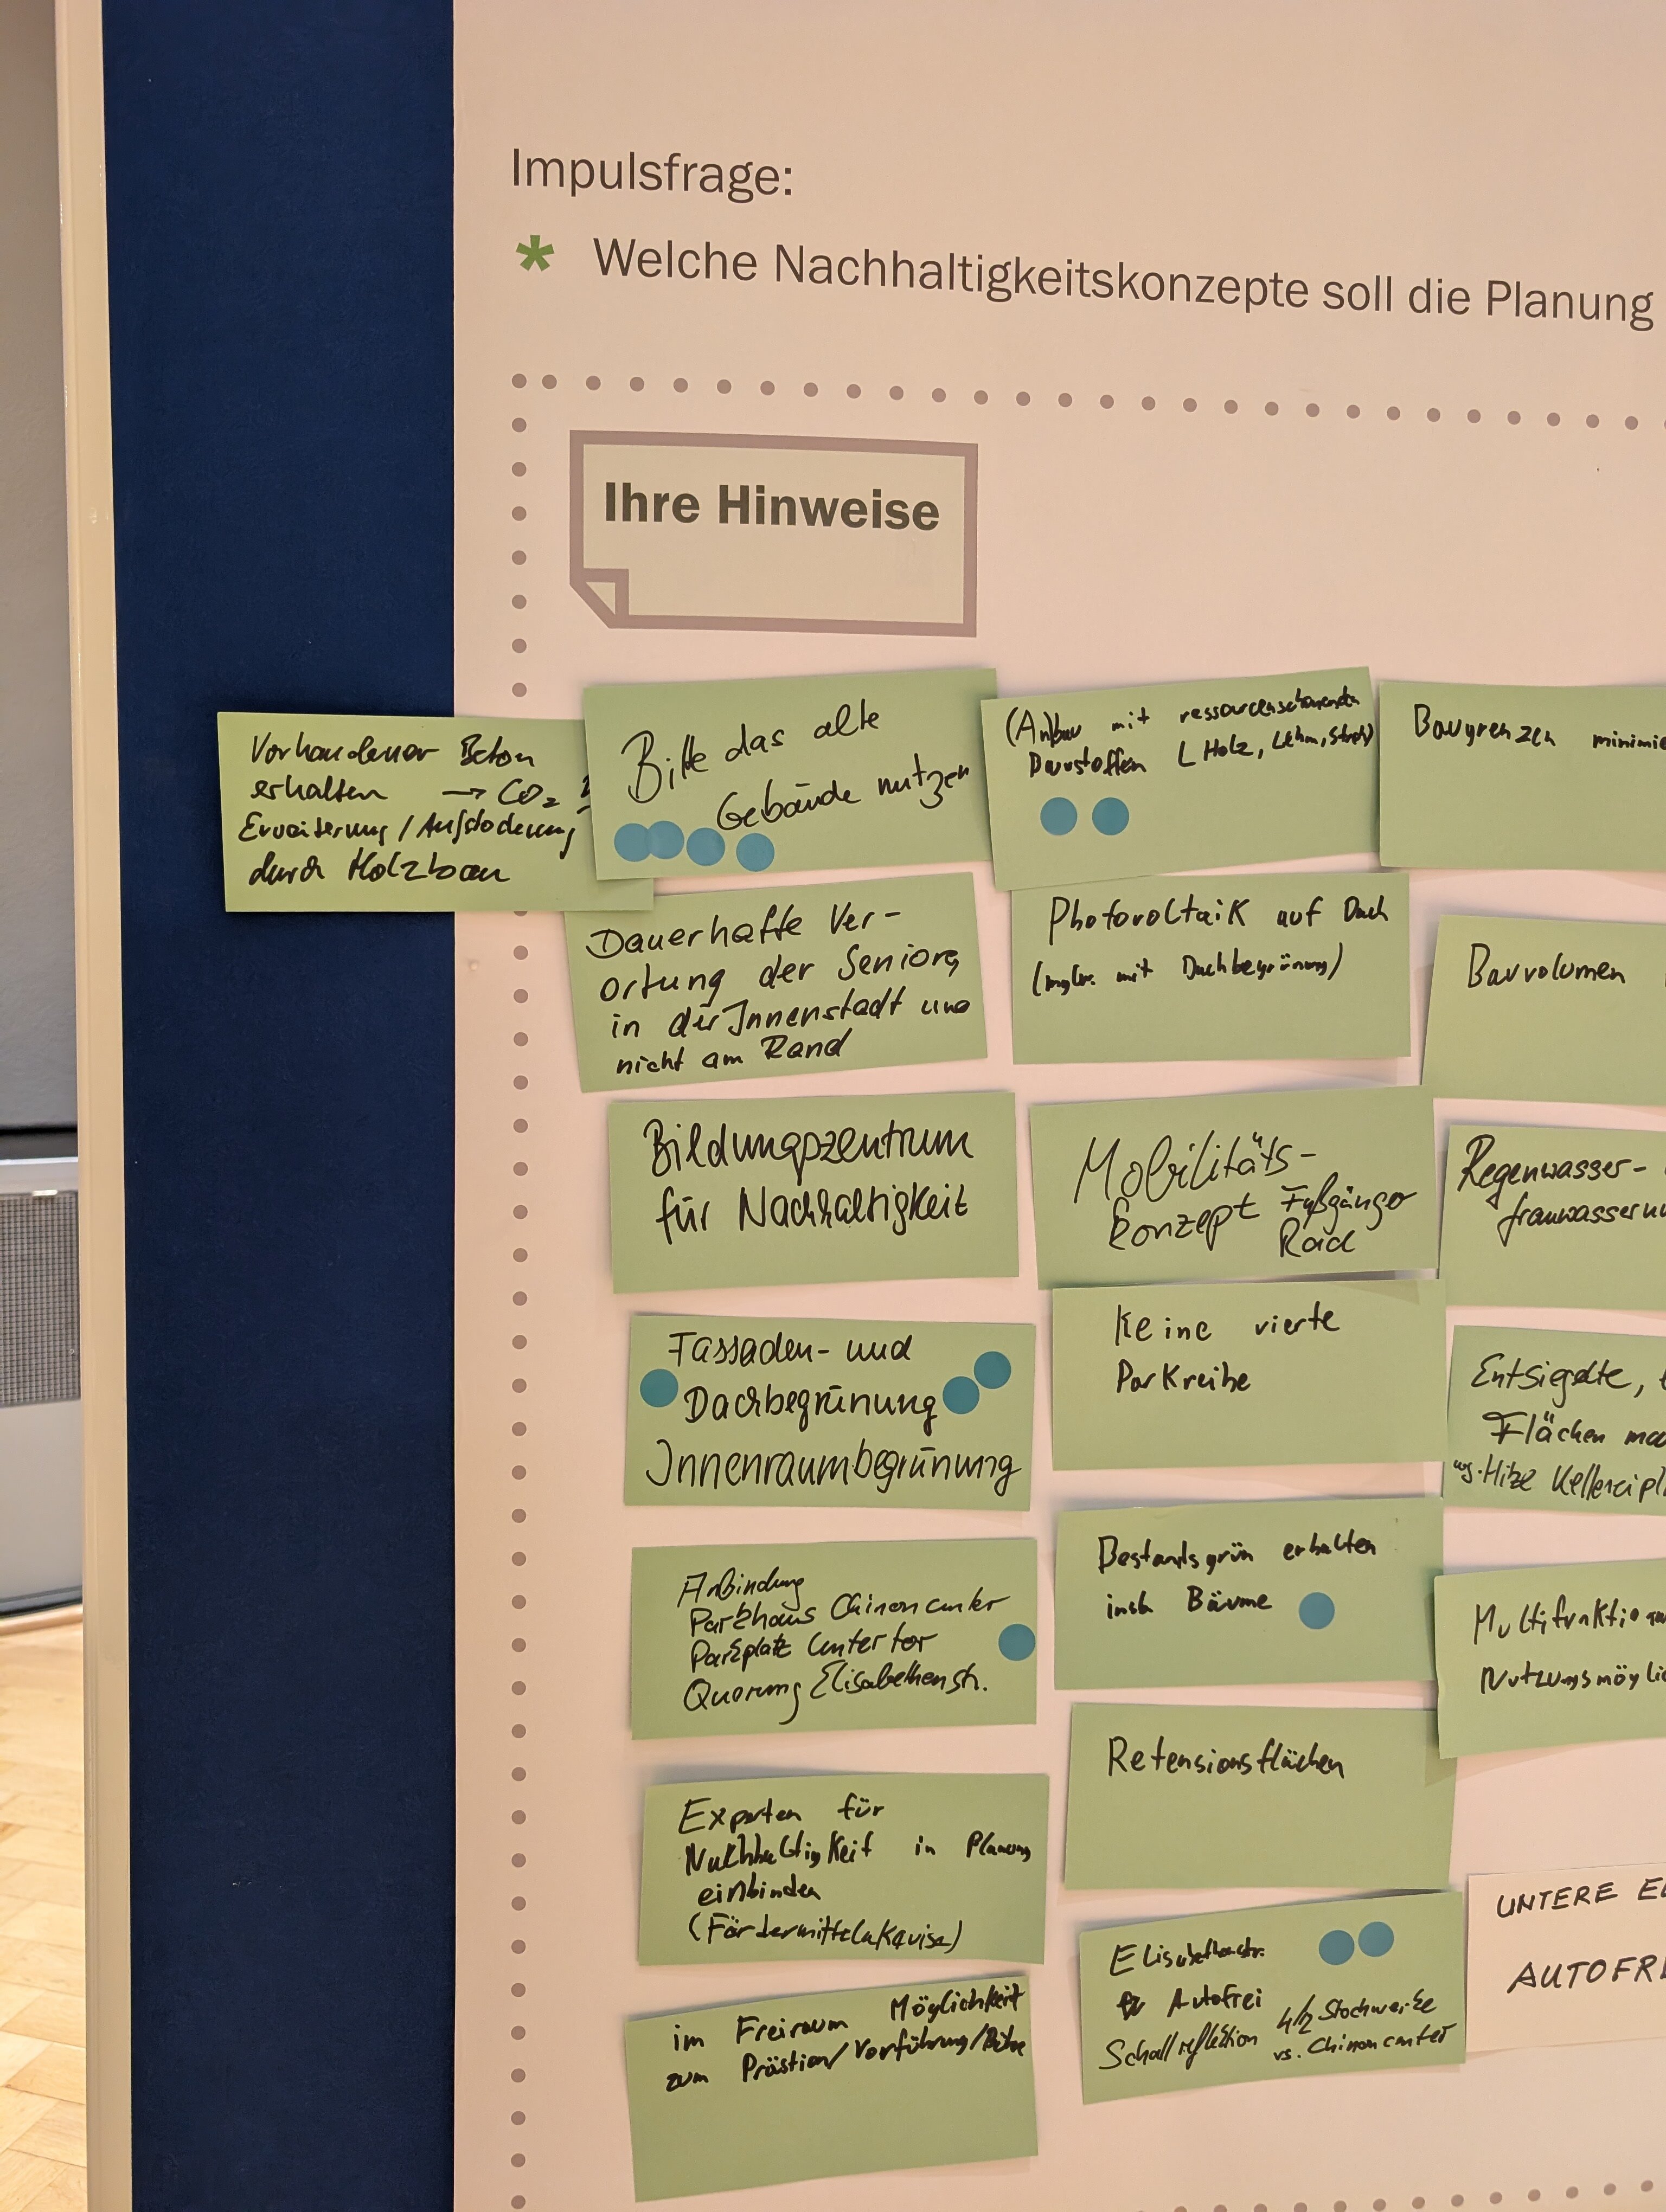 Impulsfrage:
* Welche Nachhaltigkeitskonzepte soll die Planung
Ihre Hinweise
Vorhandener Beton
erhalten → CO₂
Erweiterung / Aufstockung
durch Holzbau
Bitte das alte
Gebäude nutzen
(An)bau mit ressourcenschonenden
Baustoffen (Holz, Lehm, Stroh)
Baugrenzen
Dauerhafte Ver-
ortung der Senioren
in der Innenstadt und
nicht am Rand
Photovoltaik auf Dach
mit Dachbegrünung)
Bauvolumen
Bildungszentrum
für Nachhaltigkeit
Mobilitäts-
konzept Fußgänger
Rad
Regenwasser-
Fassaden- und
Dachbegrünung
Innenraumbegrünung
Keine vierte
Parkreihe
Entsiegelte,
Flächen
wg. Hitze
Anbindung
Parkhaus Chinoncenter
Parkplatz Untertor
Querung Elisabethenstr.
Bestandsgrün erhalten
insb Bäume
Experten für
Nachhaltigkeit in Planung
einbinden
(Fördermittelakquise)
Retensionsflächen
Elisabethenstr.
Autofrei
Schallreflektion 4/2 Stockwerke
vs. Chinoncenter
UNTERE
im Freiraum Möglichkeit
zum Vorführung/Bühne